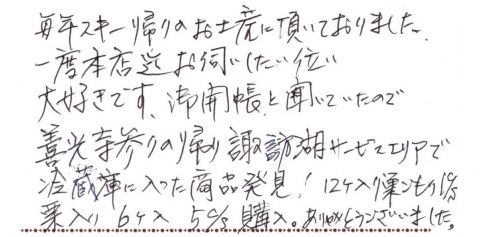 毎年スキー帰りのお土産に頂いておりました。
一度本店迄お伺いしたい位い
大好きです、御開帳と聞いていたので
善光寺参りの帰り諏訪湖サービスエリアで
冷蔵庫に入った商品発見! 12ヶ入り
栗入り 6ヶ入 5 購入。ありがとうございました。